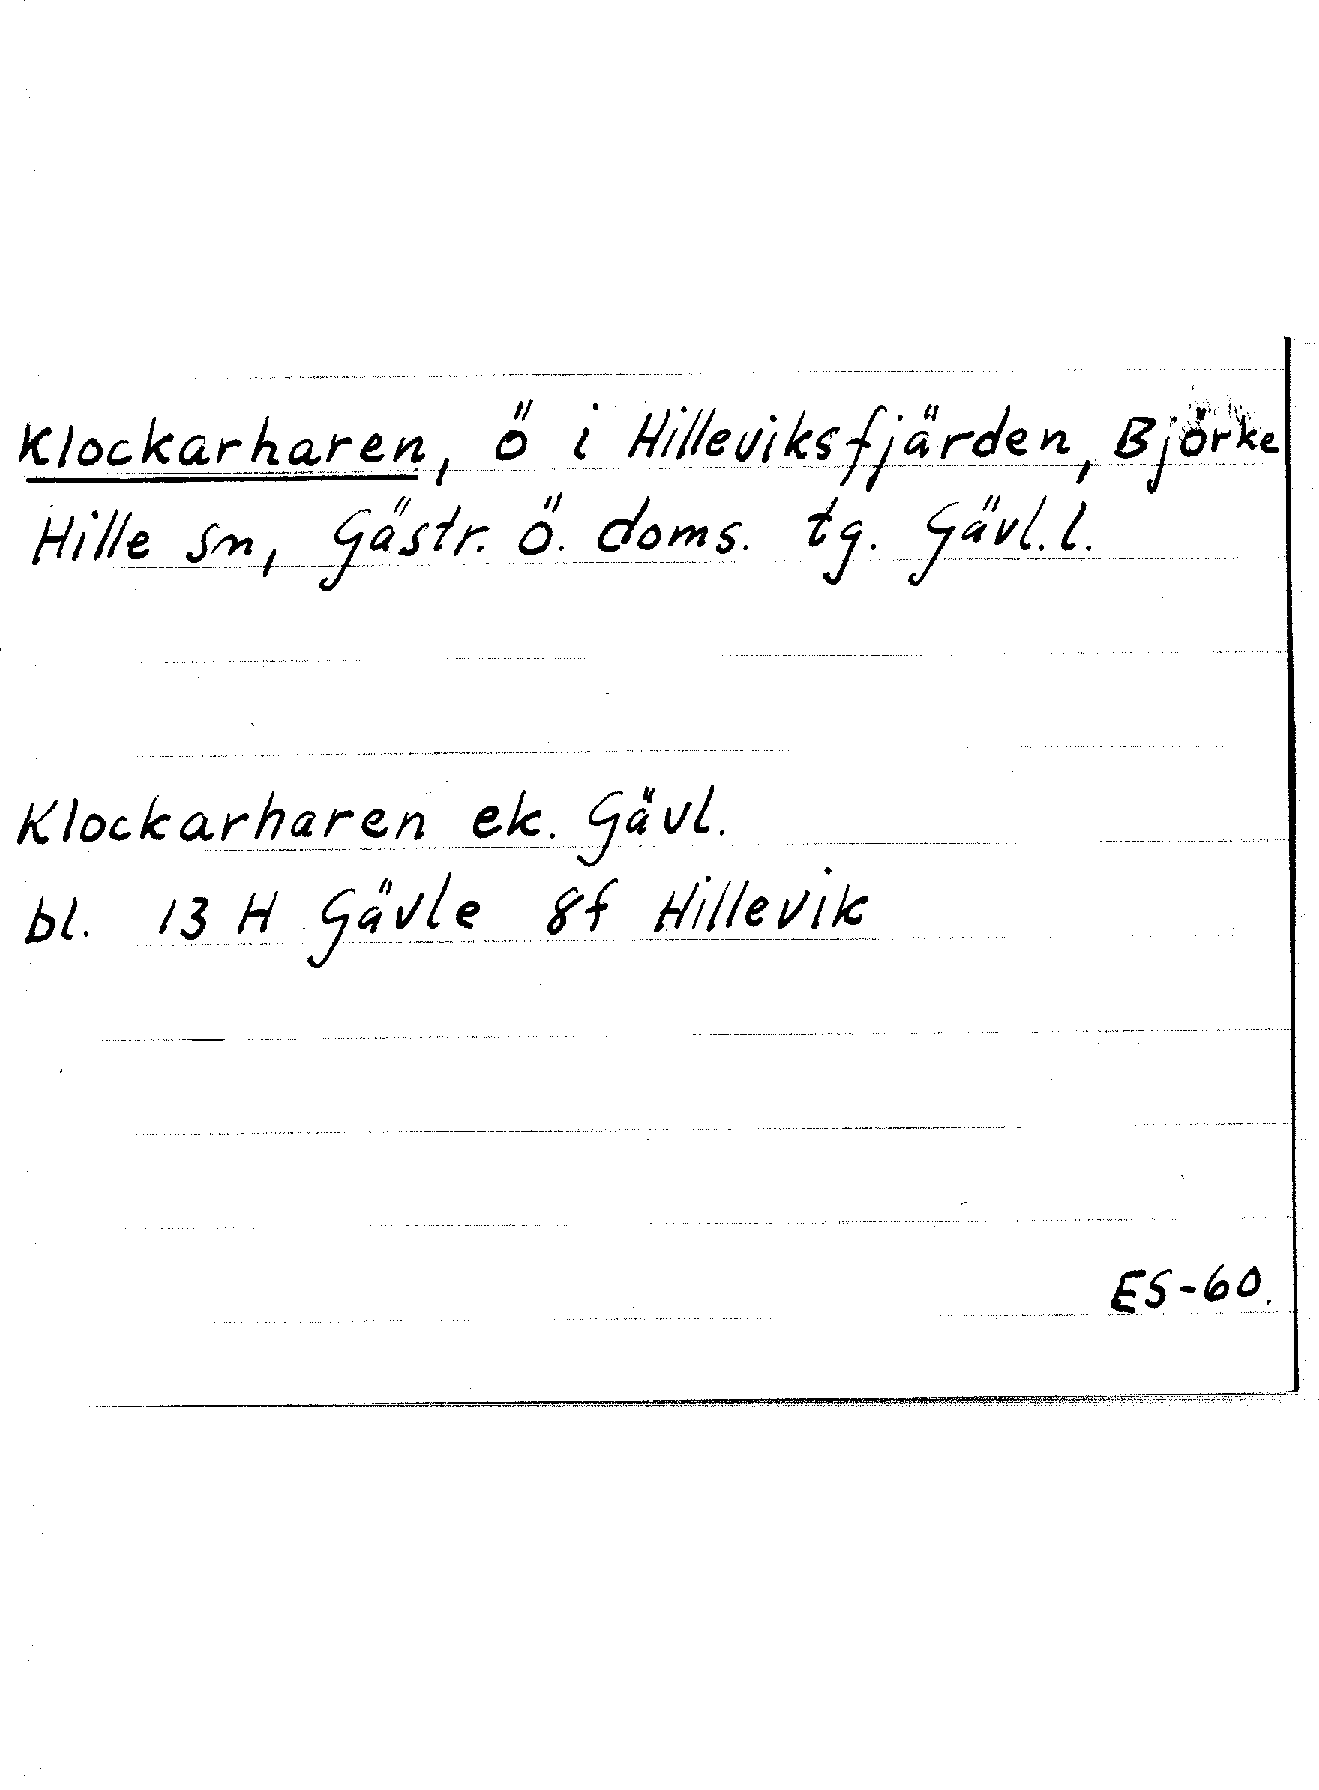 Klockarharen, ö i Hilleviksfjärden, Björke
Hille sn, Gästr. Ö. doms. tg. Gävl. l.
Klockarharen ek. Gävl.
bl. 13 H Gävle 8f Hillevik
ES-60.